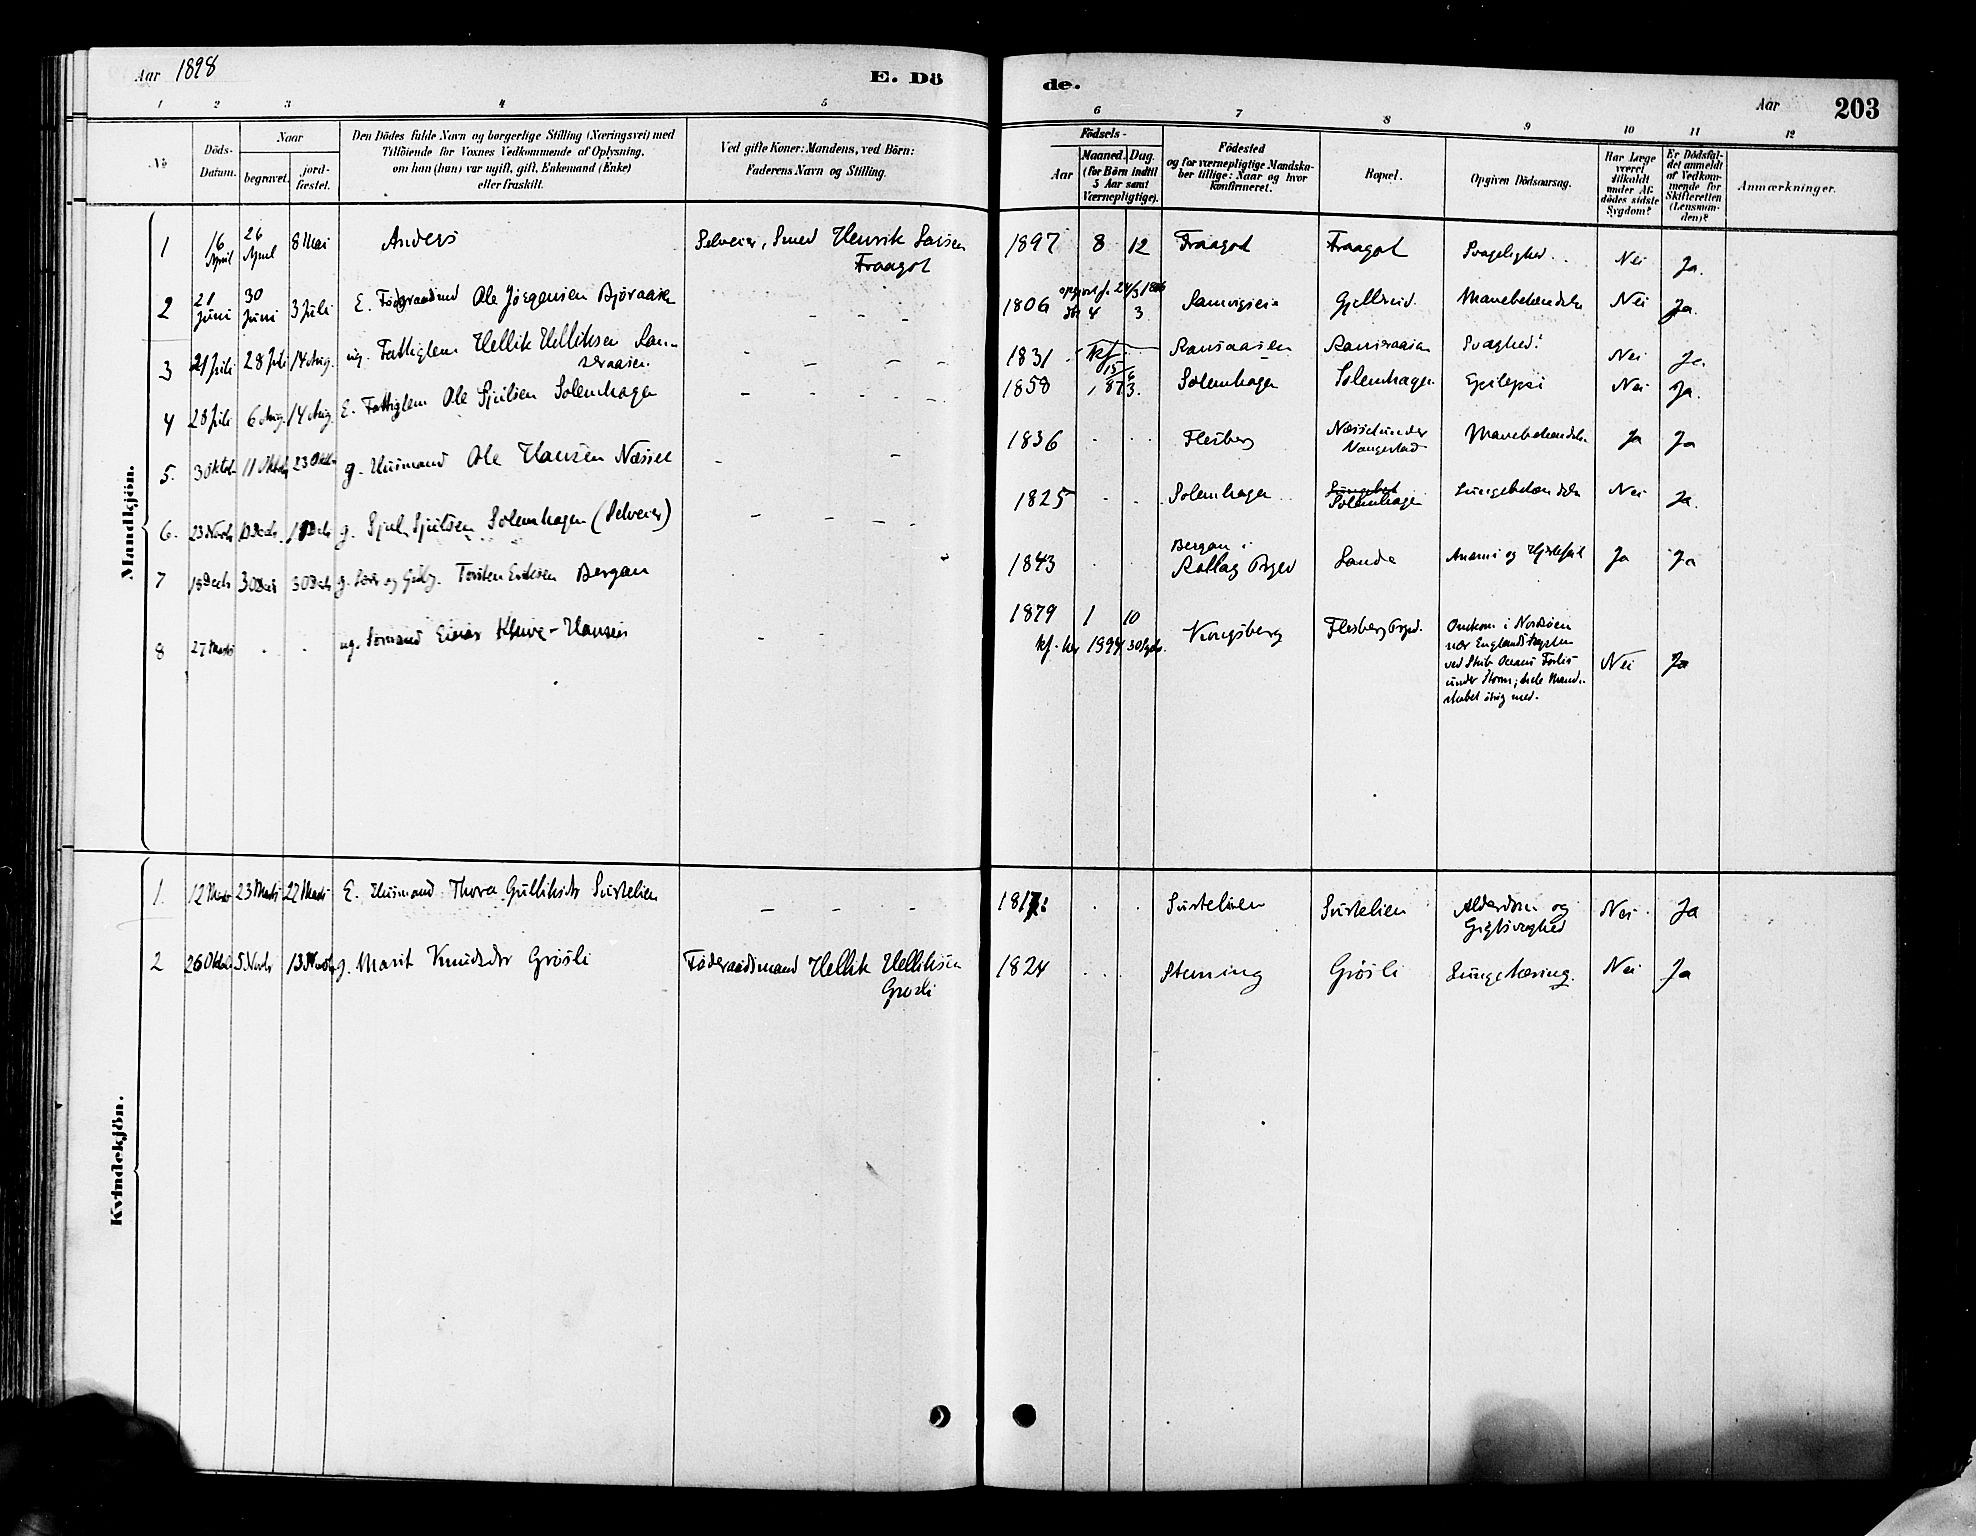 Aar 1898
E. Dö
de.
Aar
203
1 2 3 4 5 6 7 8 9 10 11 12
No
Döds-
Datum.
Naar
begravet.
jord-
fæstet.
Den Dödes fulde Navn og borgerlige Stilling (Næringsvei) med
Tilföiende for Voxnes Vedkommende af Oplysning,
om han (hun) var ugift, gift, Enkemand (Enke)
eller fraskilt.
Ved gifte Koner: Mandens, ved Börn:
Faderens Navn og Stilling.
Födsels-
Aar
Maaned. Dag.
(for Börn indtil
5 Aar samt
Værnepligtige).
Födested
og for værnepligtige Mandska-
ber tillige: Naar og hvor
konfirmeret.
Bopæl.
Opgiven Dödsaarsag.
Har Læge
været
tilkaldt
under Af-
dödes sidste
Sygdom?
Er Dödsfal-
det anmeldt
af Vedkom-
mende for
Skifteretten
(Lensman-
den)?
Anmærkninger.
Mandkjön.
1 16 April 26 April 8 Mai Anders Selveier, Smed Henrik Larsen
Fraagot
1897 8 12 Fraagot Fraagot Svagelighed Nei Ja.
2 21 Juni 30 Juni 3 Juli E. Föderaadmd Ole Jörgensen Björaasen - - - 1806 4 3 Gjellerud. Mavebetændelse Nei Ja.
3 21 Juli 28 Juli 14 Aug. ug. Fattiglem Hellik Helliksen Ran-
seraasen. - - - 1831 Ransaasen Ranseraasen Svaghed? Nei Ja.
4 28 Juli 6 Aug. 14 Aug. E. Fattiglem Ole Sjulsen Solemhagen - - - 1858 Solemhagen Solemhagen Epilepsi Nei Ja.
5. 3 Oktob. 11 Oktob. 23 Oktb. g. Husmand Ole Hansen Næsset - - 1836 Flesberg Næsset under
Vangestad Mavebetændelse Ja Ja
6. 23 Novbr. g. Sjul Sjulsen Solemhagen (Selveier) - - - 1825 Solemhagen Solemhagen Lungebetændelse Nei Ja.
7 30 Decb. g. Torsten Eriksen Bergan 1843 Bergan i
Rollag Prgjd Lande Anæmi og Hjertefeil Ja Ja
8 27 Marts ug. Sömand Einar Kluve-Hansen - - 1879 1 10
Kongsberg Flesberg Prgjd. Omkom i Nordsöen
nær Englandskysten
ved Skib Oceans Forlis
under Storm; hele Mand-
skabet strög med. Nei Ja
Kvindekjön.
1. 12 Marts 23 Marts 27 Marts E. Husmand Thora Gulliksdr Surtelien - - - Surtelien Surtelien Alderdom og
Gigtsvaghed Nei Ja
2 26 Oktob. 5 Novbr 13 Novbr g. Marit Knudsdr Grösli Föderaadsmand Hellik Helliksen
Grösli
1824 Stuning Grösli Lungetæring. Nei Ja